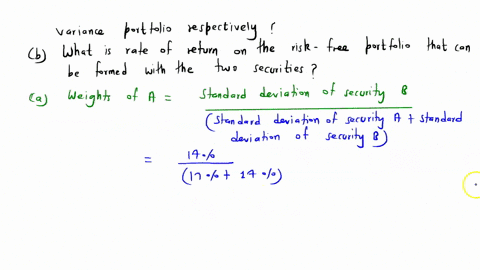 variance portfolio respectively ?
(b) What is rate of return on the risk-free portfolio that can
be formed with the two securities ?
(a) Weights of A = Standard deviation of security B
(Standard deviation of security A + standard
deviation of security B)
= 14%
(17% + 14%)